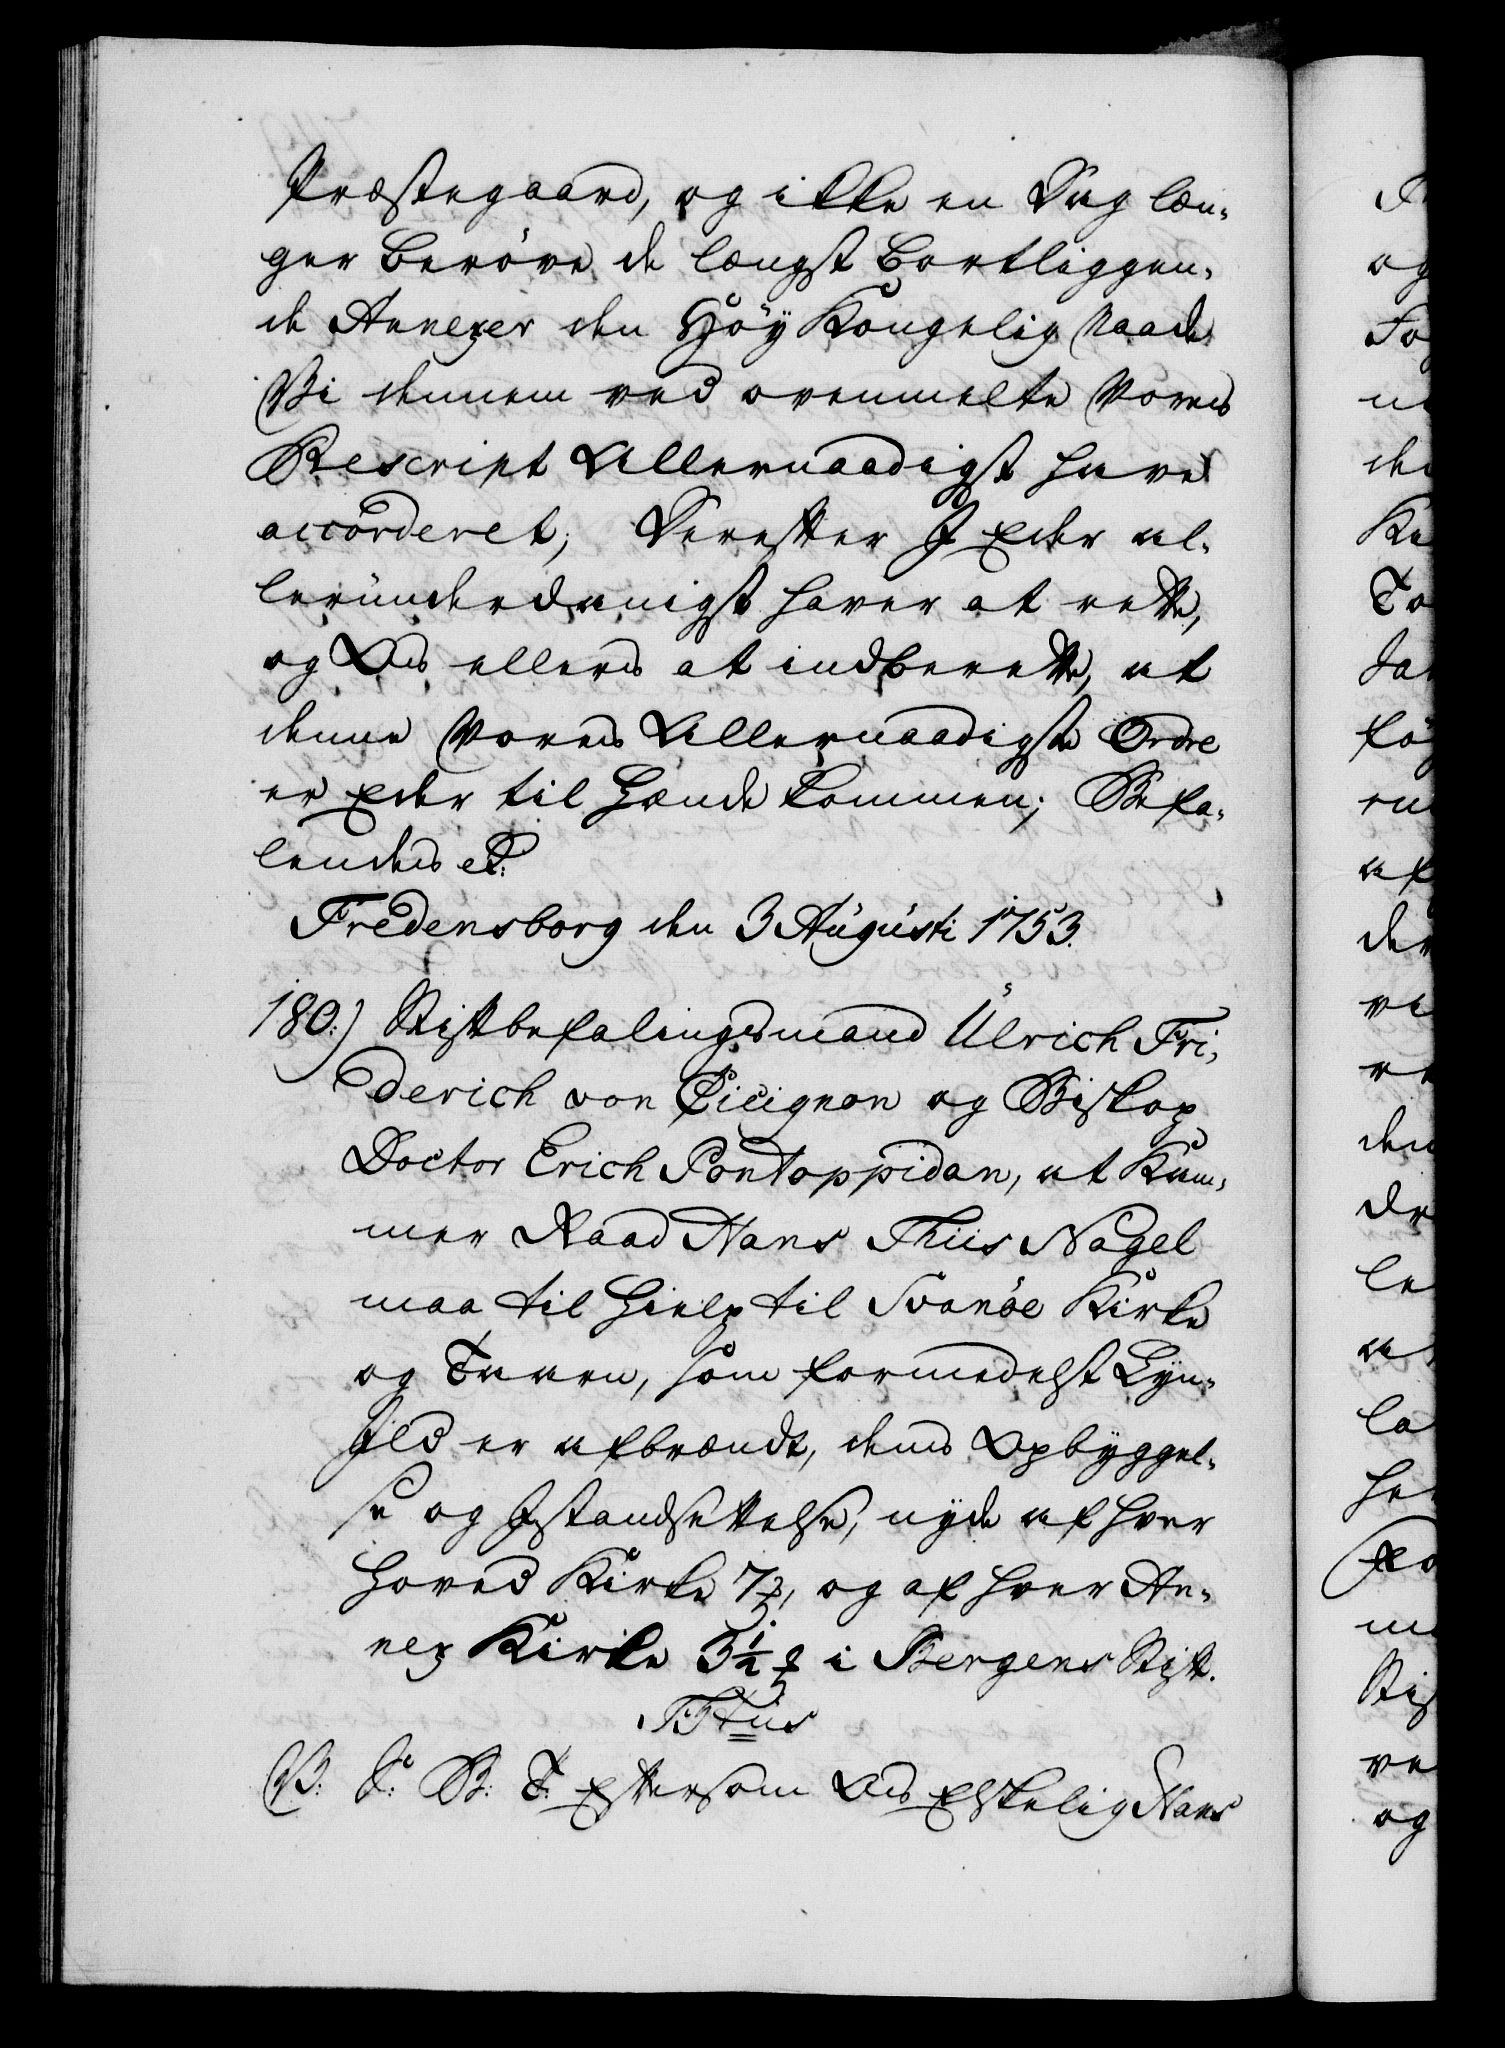 Præstegaard, og ikke en Dag læn-
ger berøve de længst bortliggen-
de Annexer den Høÿ Kongelig Naade
Vi dennem ved ovenmelte Vores
Rescript Allernaadigst have
accorderet; Derefter I Eder al-
lerunderdanigst haver at rette,
og Os ellers at indberette, at
denne Vores Allernaadigste Ordre
er Eder til Hænde kommen; Befa-
lendes etc:
Fredensborg den 3 Augusti 1753.
180:) Stiftbefalingsmand Ulrich Fri-
derich von Cicignon og Biskop
Doctor Erich Pontoppidan, at Kam-
mer Raad Hans Thiis Nagel
maa til Hielp til Svanøe Kirke
og Taarn, som formedelst Lyn-
Ild er afbrændt, dens Opbÿggel-
se og Istandsettelse, nÿde af hver
Hoved Kirke 7 ꝸ, og af hver An-
nex Kirke 3½ ꝸ i Bergens Stift.
F5tus
V: S: B: T: Eftersom Os Elskelig Hans